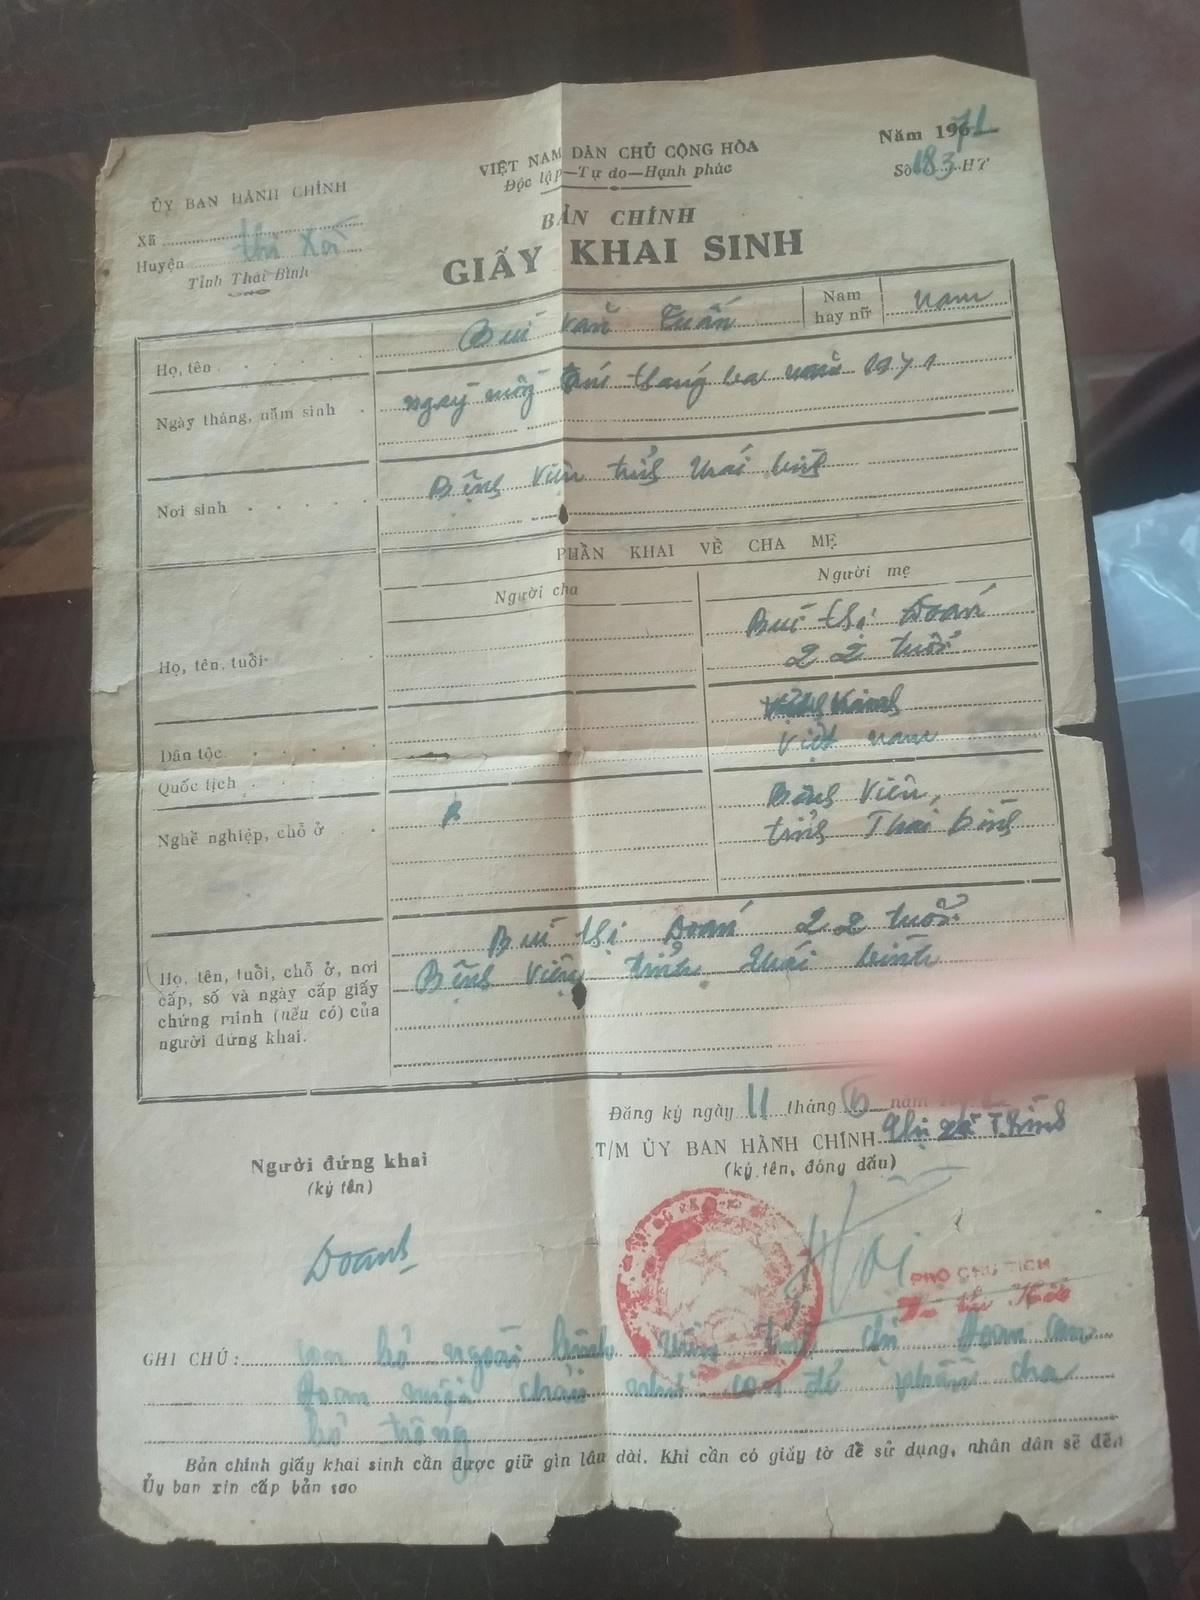 VIỆT NAM DÂN CHỦ CỘNG HÒA
Độc lập—Tự do—Hạnh phúc
Năm 1971
Số 183 HT
ỦY BAN HÀNH CHÍNH
Xã
Huyện thị Xã
Tỉnh Thái Bình
BẢN CHÍNH
GIẤY KHAI SINH
Họ, tên Bùi Văn Tuấn
Nam hay nữ nam
Ngày tháng, năm sinh ngày tám tháng ba năm 1971
Nơi sinh Bệnh Viện tỉnh thái bình
PHẦN KHAI VỀ CHA MẸ
Người cha
Người mẹ
Họ, tên, tuổi
Bùi thị Doán
22 tuổi
Dân tộc
Quốc tịch Việt nam
Nghề nghiệp, chỗ ở B
Bệnh Viện,
tỉnh Thái bình
Họ, tên, tuổi, chỗ ở, nơi cấp, số và ngày cấp giấy chứng minh (nếu có) của người đứng khai.
Bùi thị Doán 22 tuổi
Bệnh Viện tỉnh thái bình
Đăng ký ngày 11 tháng 6 năm
T/M ỦY BAN HÀNH CHÍNH thị xã T.Bình
(ký tên, đóng dấu)
Người đứng khai
(ký tên)
Doanh
PHÓ CHỦ TỊCH
GHI CHÚ: con bố ngoài
con để phần cha
bỏ trống
Bản chính giấy khai sinh cần được giữ gìn lâu dài. Khi cần có giấy tờ để sử dụng, nhân dân sẽ đến
Ủy ban xin cấp bản sao